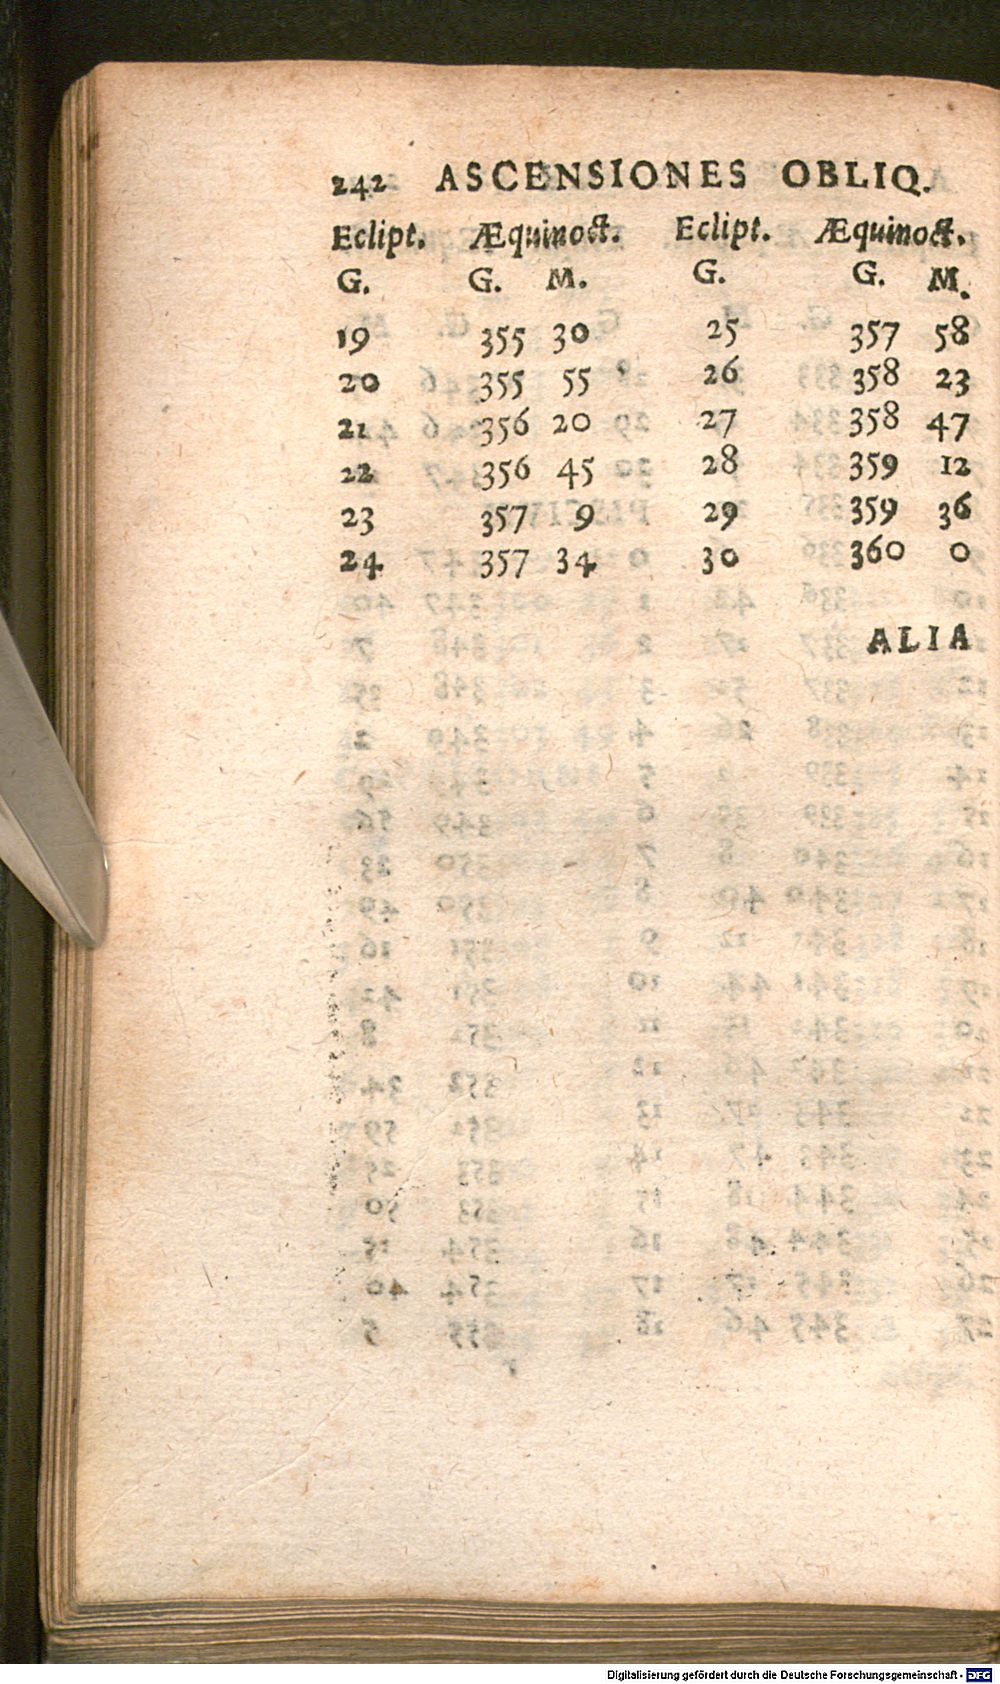 242 ASCENSIONES OBLIQ.
Eclipt. Æquinoct. Eclipt. Æquinoct.
G. G. M. G. G. M.
19 355 30 25 357 58
20 355 55 26 358 23
21 356 20 27 358 47
22 356 45 28 359 12
23 357 9 29 359 36
24 357 34 30 360 0
ALIA
Digitalisierung gefördert durch die Deutsche Forschungsgemeinschaft - DFG